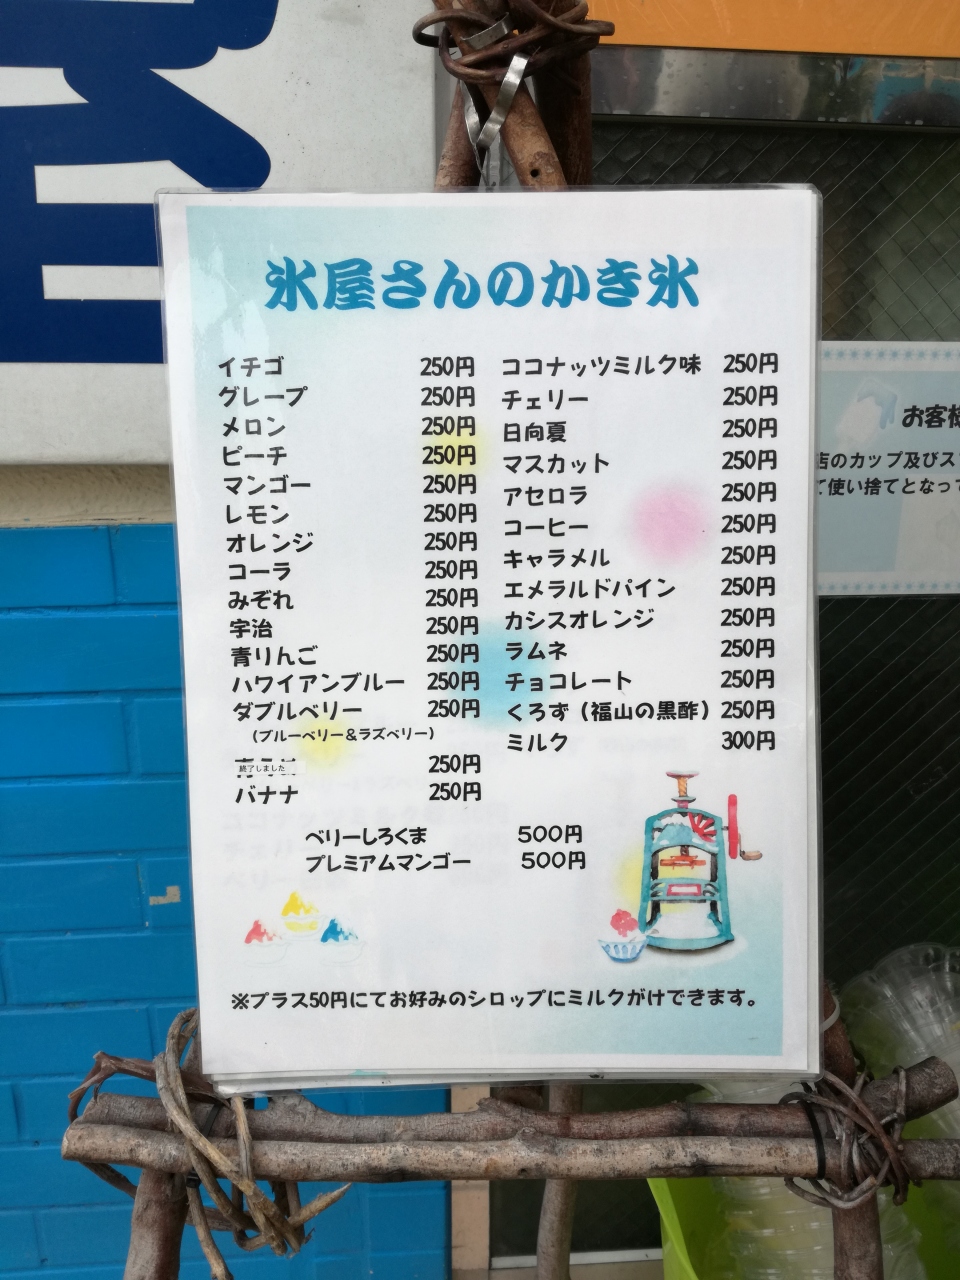 氷屋さんのかき氷
イチゴ 250円
グレープ 250円
メロン 250円
ピーチ 250円
マンゴー 250円
レモン 250円
オレンジ 250円
コーラ 250円
みぞれ 250円
宇治 250円
青りんご 250円
ハワイアンブルー 250円
ダブルベリー 250円
(ブルーベリー&ラズベリー)
終了しました 250円
バナナ 250円
ココナッツミルク味 250円
チェリー 250円
日向夏 250円
マスカット 250円
アセロラ 250円
コーヒー 250円
キャラメル 250円
エメラルドパイン 250円
カシスオレンジ 250円
ラムネ 250円
チョコレート 250円
くろず(福山の黒酢) 250円
ミルク 300円
ベリーしろくま 500円
プレミアムマンゴー 500円
※プラス50円にてお好みのシロップにミルクがけできます。
お客様
店のカップ及びス
て使い捨てとなって